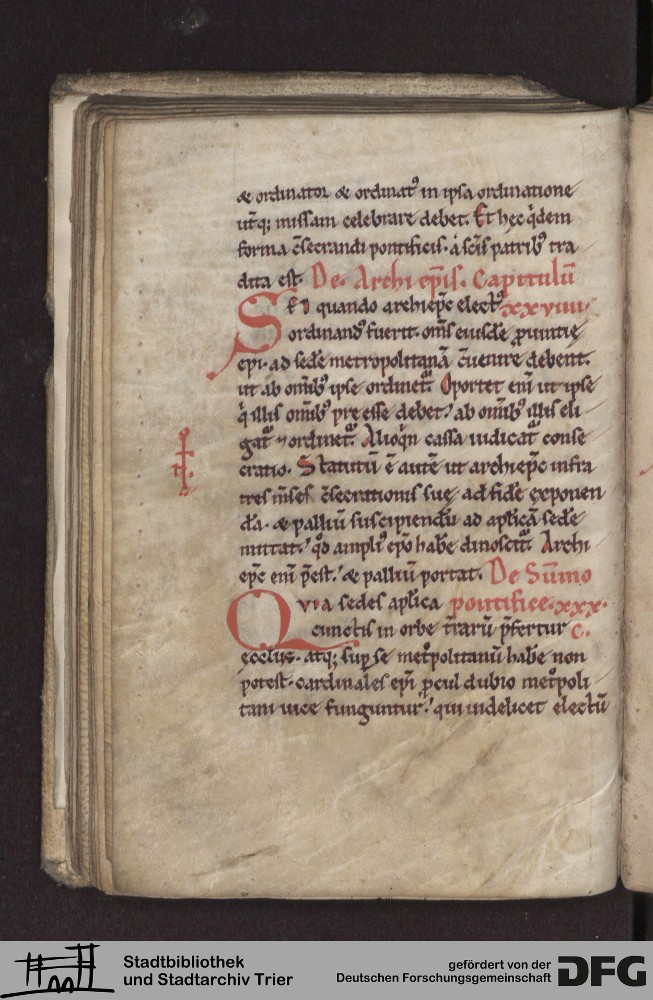 & ordinator & ordinatꝰ in ipsa ordinatione
ut̃q; missam celebrare debet. Et hęc q̇dem
forma c̄secrandi pontificis. á sc̄is patribꝰ tra
dita est. De Archiep̄is. Capitulū
SEd quando archiep̄c electꝰ xxviiii.
ordinandꝰ fuerit. om̄s eiusdē ꝓuintię
ep̄i. ad sedē metropolitanā c̄uenire debent.
ut ab om̄ibꝰ ipse ordinet᷑. Oportet eni̅ ut ipse
q̇ illis om̄ibꝰ pręesse debet. ab om̄ibꝰ illis eli
gat᷑ & ordinet᷑. Alioq̇n cassa iudicat᷑ conse
cratio. Statutū ē autē ut archiep̄c infra
tres m̄ses c̄secrationis suę. ad fidē exponen
dā. & palliū suscipiendū ad aplicā sedē
mittat. qd̊ ampliꝰ ep̄o habē dinoscit᷑. Archi
ep̄c eni̅ p̄est. & palliū portat. De Sūmo
QVia sedes aplica pontifice. xxx.
cunctis in orbe t̄rarū p̄fertur c.
ęcclis. atq; suꝑ se met°politanū habē non
potest. cardinales ep̄i ꝓcul dubio met°poli
tani uice funguntur. qui uidelicet electū
Stadtbibliothek
und Stadtarchiv Trier
gefördert von der
Deutschen Forschungsgemeinschaft
DFG